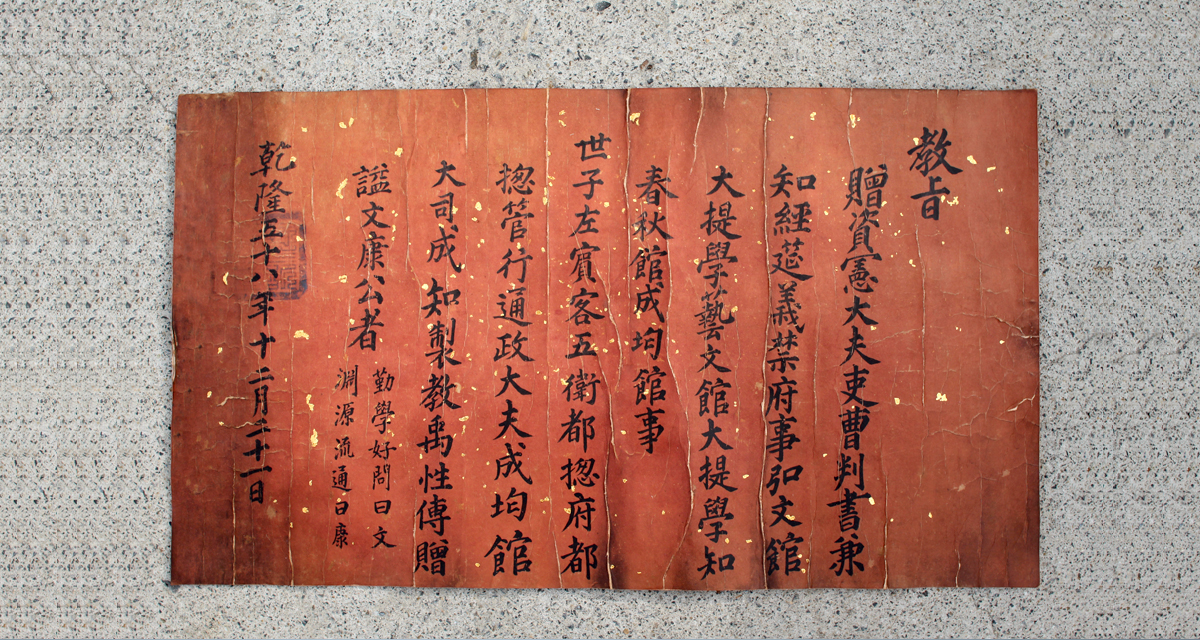 教旨
贈資憲大夫吏曹判書兼
知經莚義禁府事弘文館
大提學藝文館大提學知
春秋館成均館事
世子左賓客五衛都揔府都
揔管行通政大夫成均館
大司成知製教禹性傳贈
謚文康公者
勤學好問曰文
淵源流通曰康
乾隆五十八年十二月二十一日